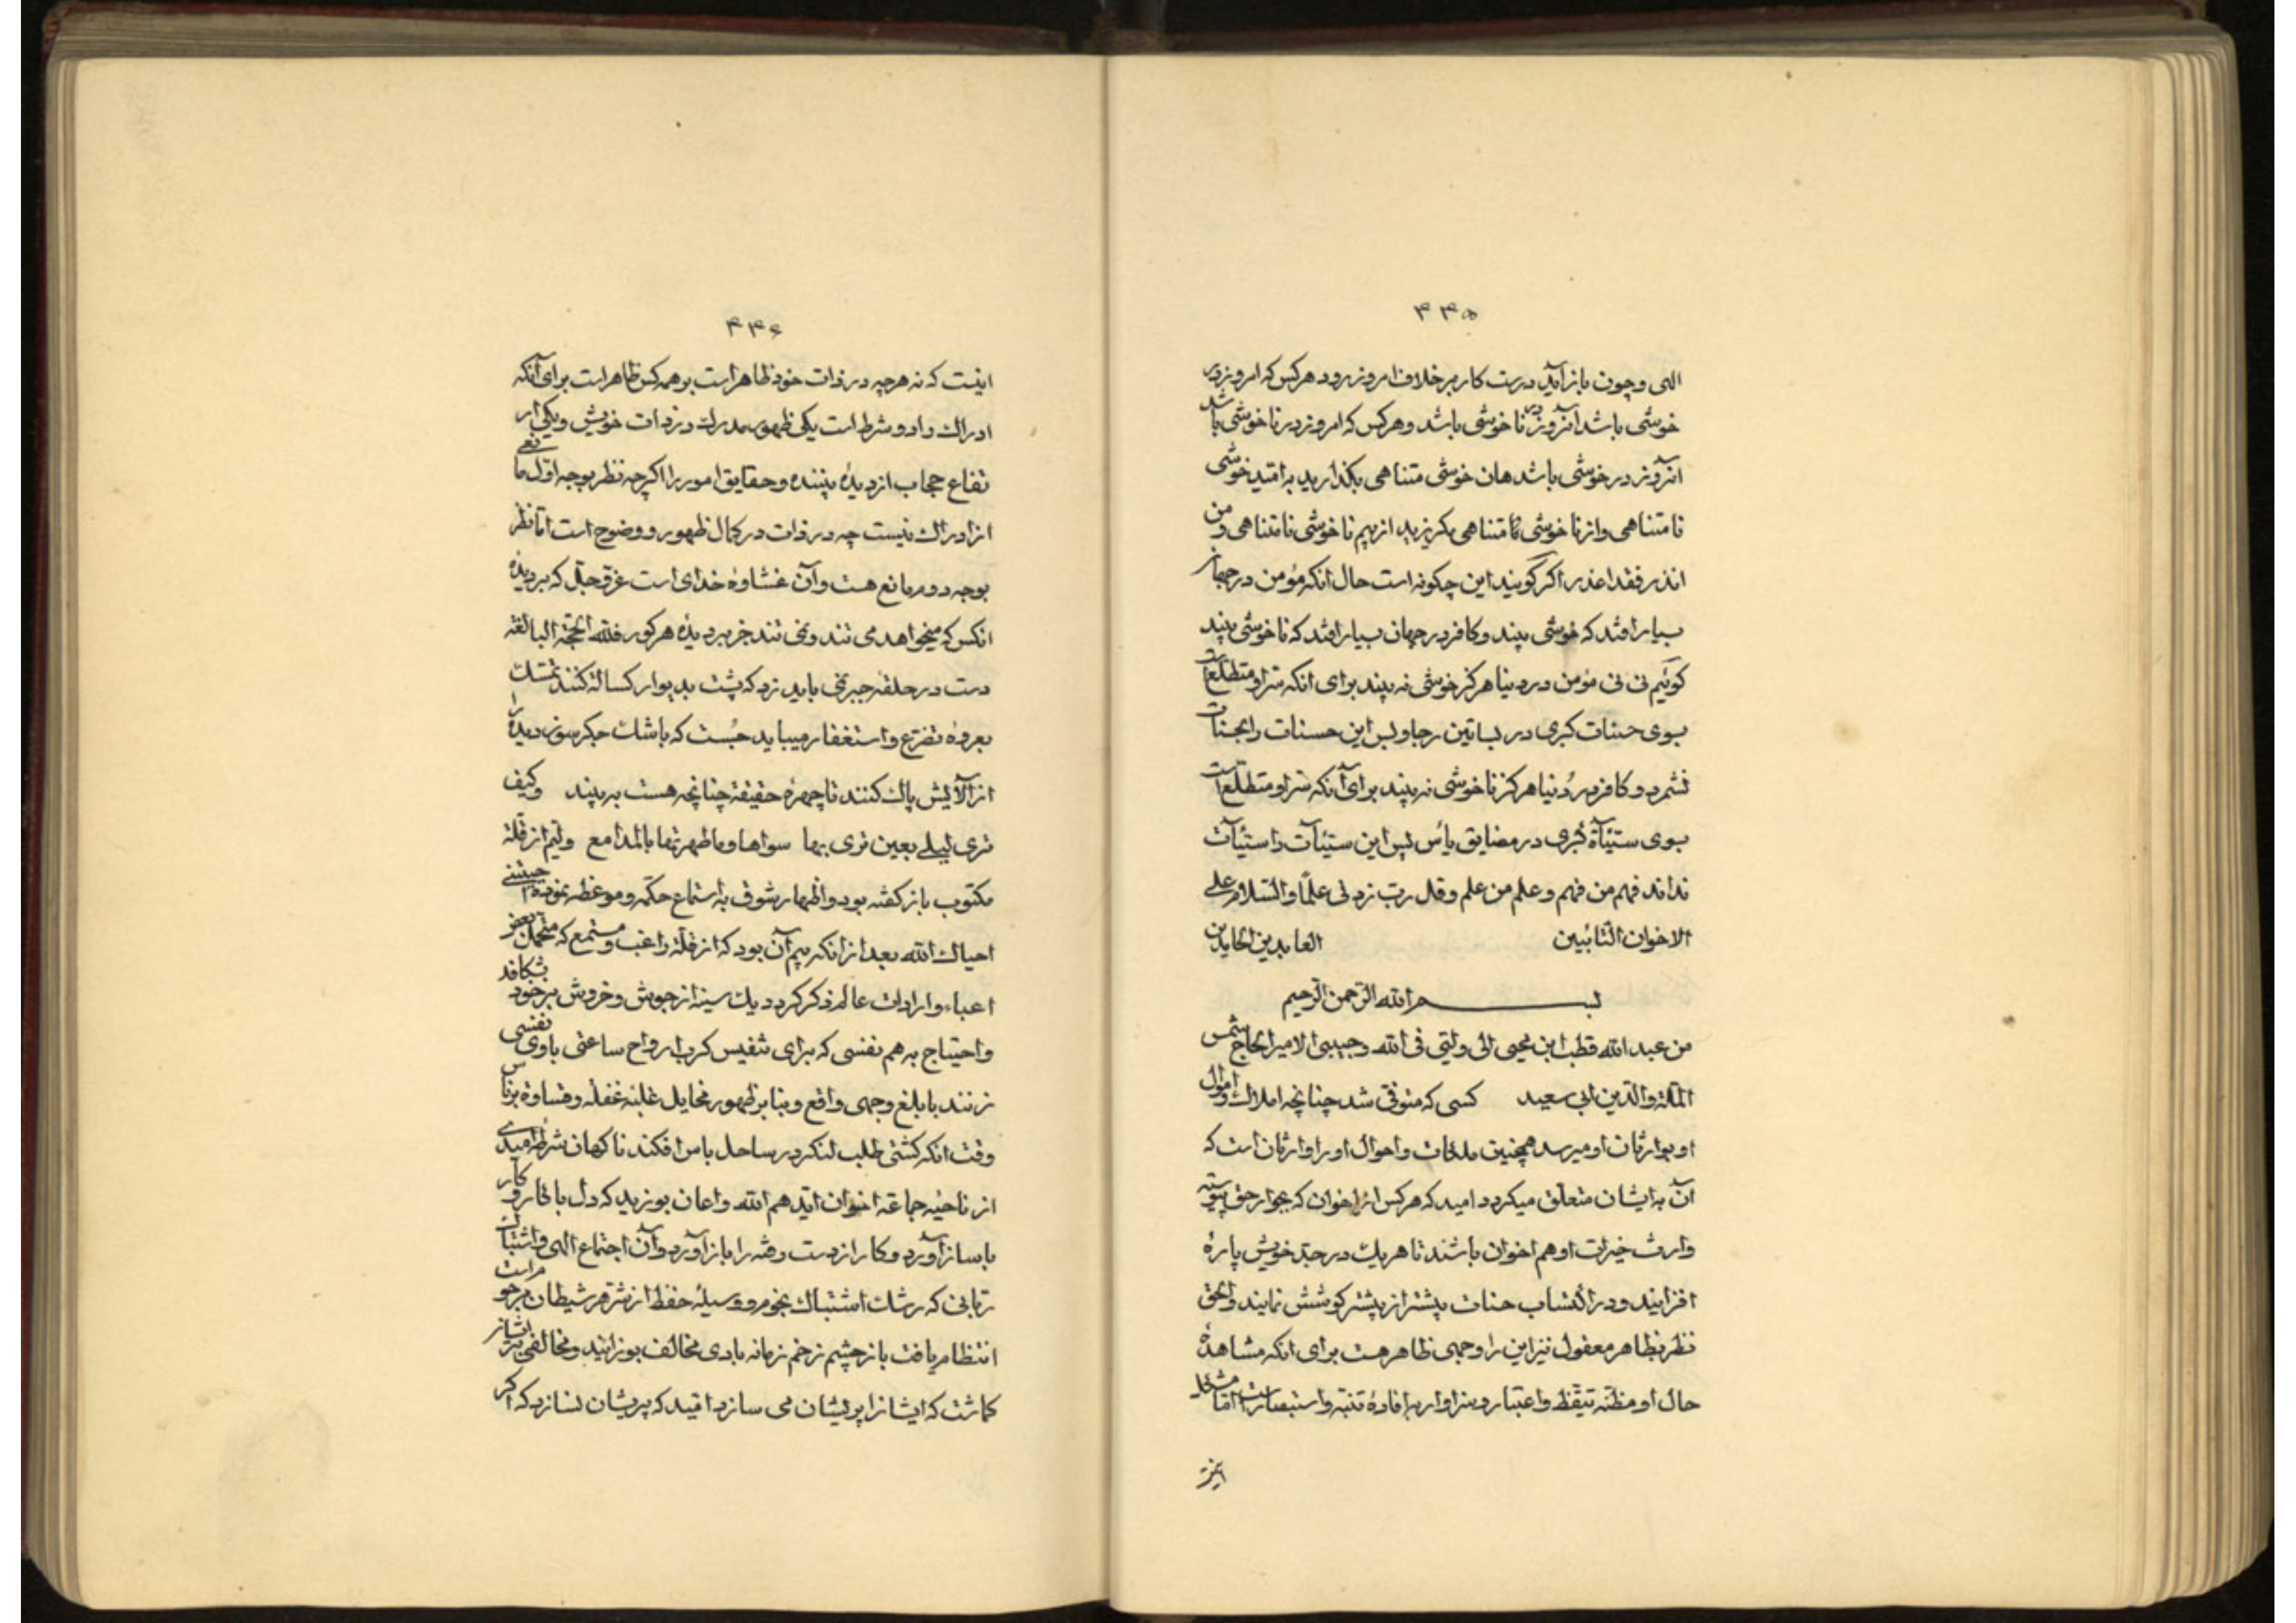 ۳۳۵
الهی و چون باز آید درست کار بر خلاف امروز رود هرکس که امروز در
خوشی باشد آنروز در ناخوشی باشد و هرکس که امروز در ناخوشی باشد
آنروز در خوشی باشد هان خوشی متناهی بگذارید به امید خوشی
نامتناهی و از ناخوشی متناهی بگریزید از بیم ناخوشی نامتناهی و من
انذر فقد اعذر اگر گویند این چگونه است حال آنکه مؤمن در جهان
بسیار افتد که خوشی بیند و کافر در جهان بسیار افتد که ناخوشی بیند
گوئیم نی نی مؤمن در دنیا هرگز خوشی نه بیند برای آنکه سر او متطلع است
بسوی حسنات کبری در بساتین رجا و پس این حسنات را بحسنات
نشمرد و کافر در دُنیا هرگز ناخوشی نه بیند برای آنکه سر او متطلع است
بسوی سیّئآة کبری در مضایق یأس پس این سیّئآت را سیّئآت
نداند فهم من فهم و علم من علم و قل رب زدنی علمًا والسّلام علی
الاخوان التّائبین العابدین الحامدین
بسم الله الرّحمن الرّحیم
من عبد الله قطب ابن محیی الی ولیّی فی الله و حبیبی الامیر الحاج شمس
الملّة والدّین ابی سعید کسی که متوفی شد چنانچه املاک و اموال
او بوارثان او میرسد همچنین ملکات و احوال او را وارثان است که
آن به ایشان متعلّق میگردد امید که هرکس از اخوان که بجوار حق پیوسته
وارث خیرات او هم اخوان باشند تا هریک در حدّ خویش پارۀ
افزایند و در اکتساب حسنات بیشتر از پیشتر کوشش نمایند والحق
نظر بظاهر معقول نیز این را وجهی ظاهر هست برای آنکه مشاهدۀ
حال او مظنّه تیقّظ و اعتبار و سزاوار به افادۀ تنبّه و استبصار است امّا مشکل
اینست
۳۳۶
اینست که نه هرچه در ذات خود ظاهر است بر همه کس ظاهر است برای آنکه
ادراک را دو شرط است یکی ظهور مدرک در ذات خویش و یکی ار
تفاع حجاب از دیدۀ بیننده و حقایق امور را اگرچه نظر بوجه اوّل مانعی
از ادراک نیست چه در ذات در کمال ظهور و وضوح است امّا نظر
بوجه دوم مانع هست و آن غشاوۀ خدای است عزّ و جلّ که بر دیدۀ
آنکس که میخواهد می تند و نمی تند جز بر دیدۀ هر کور فللّه الحجّة البالغه
دست در حلقۀ جبر نمی باید زد که پشت بدیوار کسالة کنند تمسّک
بعروۀ تضرّع و استغفار میباید جُست که باشک جگرسوز دیده را
از آلایش پاک کنند تا چهرۀ حقیقة چنانچه هست به بیند وکیف
تری لیلی بعین تری بها سواها وما طهرتها بالمدامع و لیم از قلّة
مکتوب باز گفته بود و اظهار شوق به استماع حکمه و موعظه نموده
احیاک الله بعد از آنکه بیم آن بود که از قلّة راغب و مستمع که متحمل بعض
اعباء و ارادات عالم ذکر گردد یک سینه از جوش و خروش بر خود بشکافد
و احتیاج به هم نفسی که برای تنفیس کرب ارواح ساعتی با وی نفسی
زنند بابلغ وجهی واقع و بنا بر ظهور مخایل غلبۀ غفله و قساوة بر ناس
وقت آنکه کشتی طلب لنگر در ساحل یاس افکند ناگهان شرطۀ امیدی
از ناحیۀ جماعة اخوان ایّدهم الله و اعان بوزید که دل با کار و کار
با ساز آورد و کار از دست رفته را باز آورد و آن اجتماع الهی و اشتباک
ربّانی که رشک اشتباک نجوم و وسیلۀ حفظ از شرّ هر شیطان مرجوم است
انتظام یافت باز چشم زخم زمانه بادی مخالف بوزانید و مخالفی بر ایشان
گماشت که ایشانرا پریشان می سازد امّید که پریشان نسازد که اگر